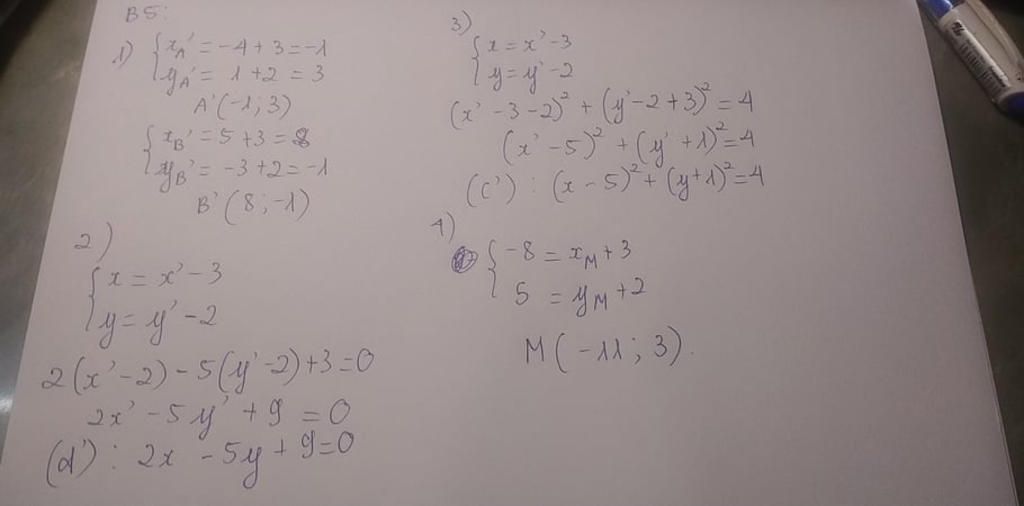 B5:
1) { xA' = -4 + 3 = -1
yA' = 1 + 2 = 3
A' (-1; 3)
{ xB' = 5 + 3 = 8
yB' = -3 + 2 = -1
B' (8; -1)
2)
{ x = x' - 3
y = y' - 2
2(x' - 2) - 5(y' - 2) + 3 = 0
2x' - 5y' + 9 = 0
(d'): 2x - 5y + 9 = 0
3)
{ x = x' - 3
y = y' - 2
(x' - 3 - 2)² + (y' - 2 + 3)² = 4
(x' - 5)² + (y' + 1)² = 4
(C'): (x - 5)² + (y + 1)² = 4
4)
{ -8 = xM + 3
5 = yM + 2
M (-11; 3).